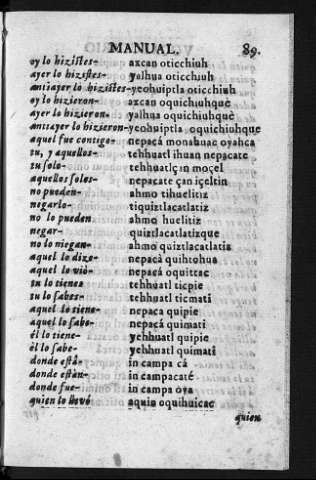 MANUAL. 89.
oy lo hizistes- axcan oticchiuh
ayer lo hizistes- yalhua oticchiuh
antiayer lo hizistes-yeohuiptla oticchiuh
oy lo hizieron- axcan oquichiuhquè
ayer lo hizieron- yalhua oquichiuhquè
antiayer lo hizieron-yeohuiptla oquichiuhque
aquel fue contigo- nepacá monahuac oyahca
tu, y aquellos- tehhuatl ihuan nepacate
tu solo- tehhuatlç in moçel
aquellos solos- nepacate çan içeltin
no pueden- ahmo tihuelitiz
negarlo- tiquiztlacatlatiz
no lo pueden ahmo huelitiz
negar- quiztlacatlatizque
no lo niegan- ahmo quiztlacatlatia
aquel lo dize- nepacà quihtohua
aquel lo viò- nepacá oquittac
tu lo tienes tehhuatl ticpie
tu lo sabes- tehhuatl ticmati
aquel lo tiene- nepaca quipie
aquel lo sabe- nepacá quimati
èl lo tiene- yehhuatl quipie
èl lo sabe- yehhuatl quimati
donde està- in campa cá
donde estàn- in campacaté
donde fue- in campa oya
quien lo llevó aquin oquihuicac
quien